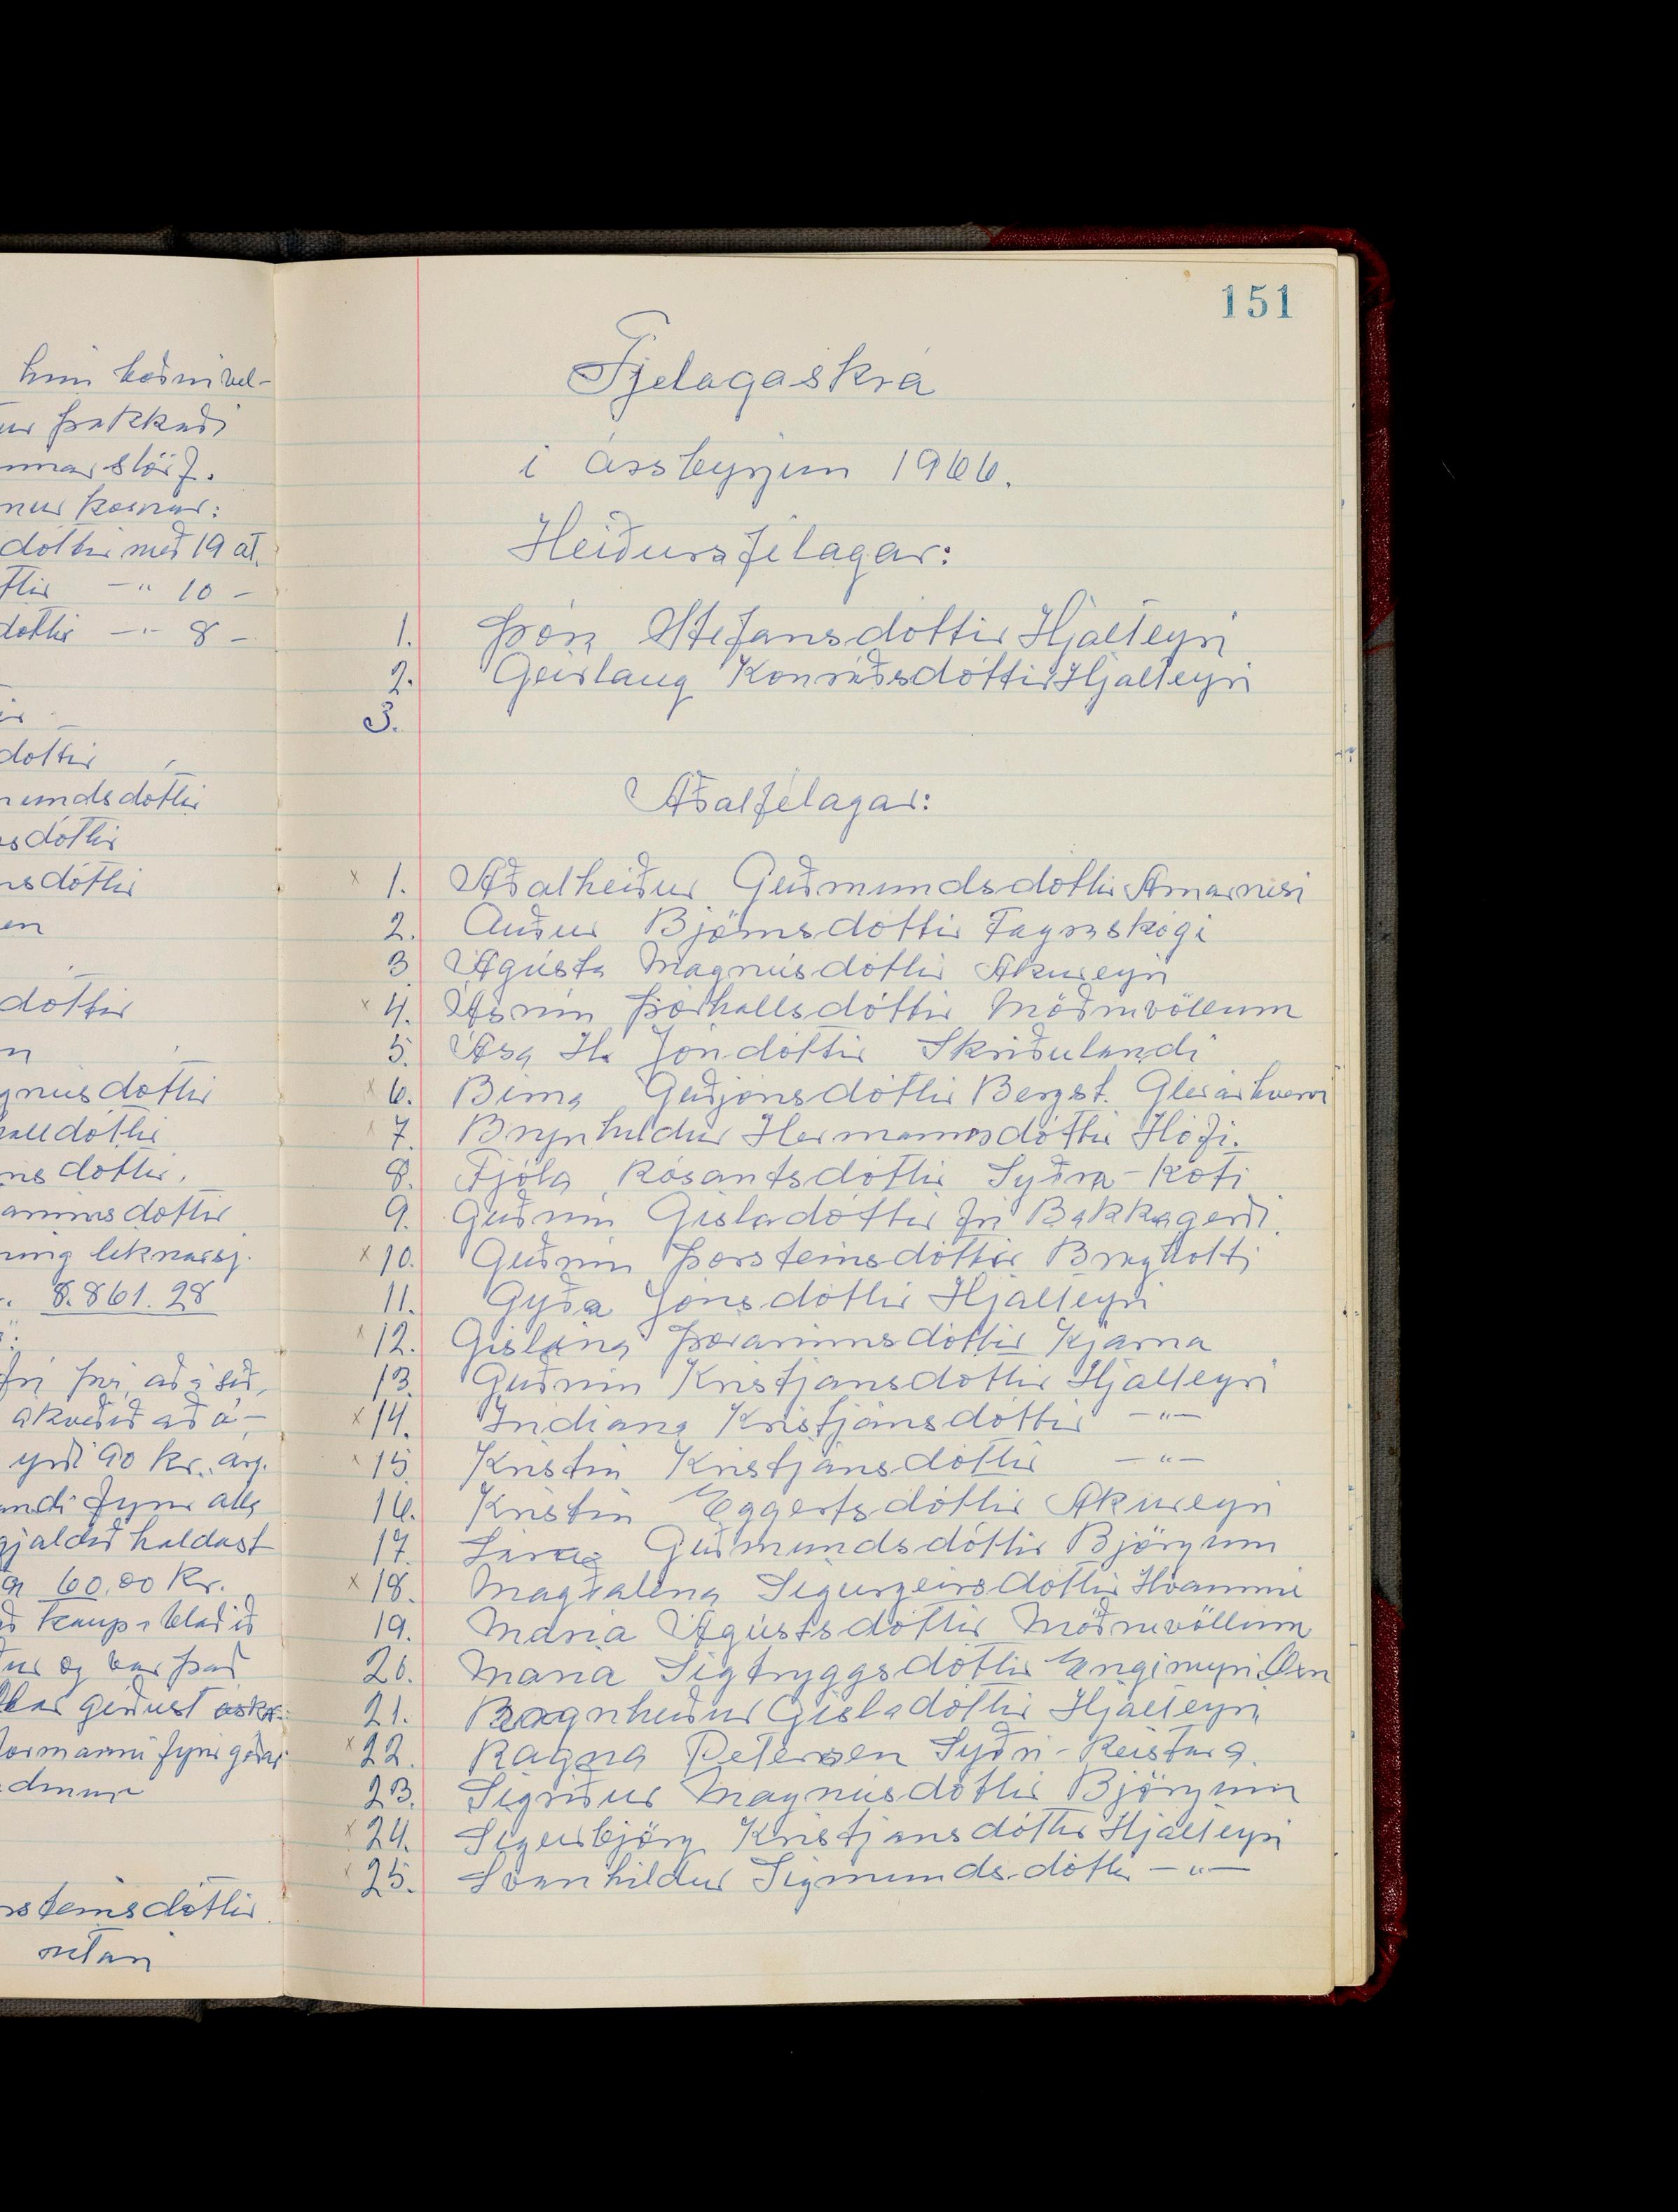 hún boðni vel-
ur þakkaði
unnar störf.
nur kosnar:
dóttir með 19 at.
ttir —"— 10 —
dóttir —"— 8 —
dóttir
mundsdóttir
nsdóttir
nsdóttir
en
dóttir
n
gnúsdóttir
alldóttir
nsdóttir.
arinnsdóttir
ning leknarsj.
8.861.28
frí því, að á síð,
ákveðið að á-
yrði 90 kr. árg.
andi fyrir alla
gjaldið haldast
60,00 kr.
kaupa blaðið
ur og var það
Þar gerðust
formanni fyrir góðar
rsteinsdóttir
ritari
151
Fjelagaskrá
í ársbyrjun 1966.
Heiðursfélagar:
1. Þóra Stefánsdóttir Hjalteyri
2. Geirlaug Konráðsdóttir Hjalteyri
3.
Aðalfélagar:
x 1. Aðalheiður Guðmundsdóttir Arnarnesi
2. Auður Björnsdóttir Fagraskógi
3 Ágústa Magnúsdóttir Akureyri
x 4. Ásrún Þórhallsdóttir Möðruvöllum
5. Ása H. Jóndóttir Skriðulandi
x 6. Birna Guðjónsdóttir Bergst. Glerárhverfi
x 7. Brynhildur Hermannsdóttir Hofi.
8. Fjóla Rósantsdóttir Syðra-Koti
9. Guðrún Gísladóttir frá Bakkagerði.
x 10. Guðrún Þorsteinsdóttir Bragholti
11. Gyða Jónsdóttir Hjalteyri
x 12. Gíslína Þórarinnsdóttir Kjarna
13. Guðrún Kristjánsdóttir Hjalteyri
x 14. Indíana Kristjánsdóttir —"—
x 15. Kristín Kristjánsdóttir —"—
16. Kristín Eggertsdóttir Akureyri
17. Lára Guðmundsdóttir Björgum
x 18. Magðalena Sigurgeirsdóttir Hvammi
19. María Ágústsdóttir Möðruvöllum
20. María Sigtryggsdóttir Engimýri Öxn
21. Ragnheiður Gísladóttir Hjalteyri
x 22. Ragna Petersen Syðri-Reistará.
23. Sigríður Magnúsdóttir Björgum
x 24. Sigurbjörg Kristjánsdóttir Hjalteyri
x 25. Svanhildur Sigmundsdóttir —"—